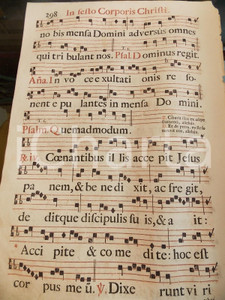 298 In festo Corporis Christi.
no bis mensa Domini adversus omnes
qui tribulant nos. Psal. Dominus regit.
Aña. In vo ce exultati onis re so-
nent e pu lantes in mensa Do mini.
Psalm. Quemadmodum.
Cœnantibus il lis acce pit Jesus
pa nem, & be ne di xit, ac fre git,
de ditque discipulis su is, & a it:
Acci pite & co me di te: hoc est
cor pus me ũ. ℣. Dixe runt vi ri